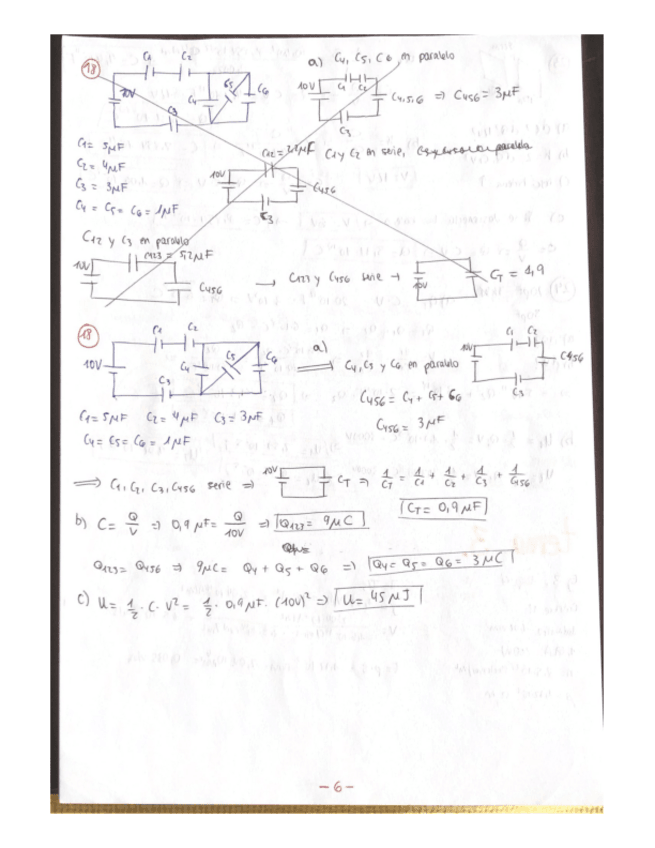 18
C1 C2
10V C4 C5 C6
C3
a) C4, C5, C6 en paralelo
10V C1 C2 C4,5,6 => C456 = 3µF
C3
C1 = 5µF
C2 = 4µF
C3 = 3µF
C4 = C5 = C6 = 1µF
C12 = 2,2µF C1 y C2 en serie,
10V C456
C3
C12 y C3 en paralelo
C123 = 5,2µF
10V C456 → C123 y C456 serie → 10V CT = 1,9
18
C1 C2
10V C4 C5 C6
C3
a)
=> C4, C5 y C6 en paralelo
C1 C2
10V C456
C3
C456 = C4 + C5 + C6
C456 = 3µF
C1 = 5µF C2 = 4µF C3 = 3µF
C4 = C5 = C6 = 1µF
=> C1, C2, C3, C456 serie => 10V CT => 1/CT = 1/C1 + 1/C2 + 1/C3 + 1/C456
CT = 0,9µF
b) C = Q/V => 0,9µF = Q/10V => Q123 = 9µC
Q123 = Q456 => 9µC = Q4 + Q5 + Q6 => Q4 = Q5 = Q6 = 3µC
c) U = 1/2 · C · V² = 1/2 · 0,9µF · (10V)² => U = 45µJ
-6-